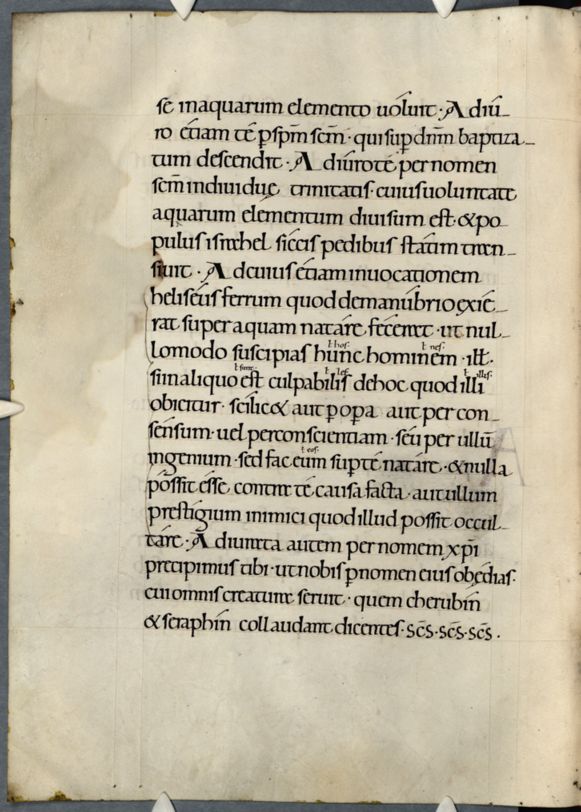 se inaquarum elemento uoluit · Adiu-
ro etiam té p spm̄ scm̄ · qui sup dn̄m baptiza-
tum descendit · Adiuroté per nomen
scm̄ indiuiduę trinitatis · cuius uoluntate
aquarum elementum diuisum est · & po-
pulus israhel siccis pedibus statim tran-
siuit · Ad cuius etiam inuocationem
heliseus ferrum quod demanubrio exie-
rat super aquam natare fecerat · ut nul-
ł hos · ł nes ·
lomodo suscipias hunc hominem · iłł ·
ł sunt · ł les · ł illis ·
si inaliquo est culpabilis dehoc quod illi
obicitur · scilic& aut p opa aut per con-
sensum · uel perconscientiam · seu per ullū
ł eos ·
ingenium · sed fac eum sup té natare · & nulla
possit esse contra té causa facta · aut ullum
prestigium inimici quod illud possit occul-
tare · Adiurata autem per nomem xp̄i
precipimus tibi · ut nobis p nomen eius obędias ·
cui omnis creatura seruit · quem cherubin
& seraphin collaudant dicentes · scs̄ · scs̄ · scs̄ ·